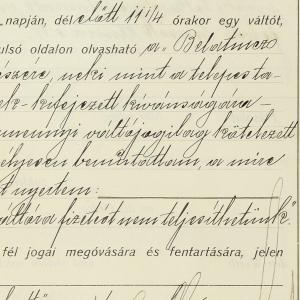 napján, dél előtt 11 1/4 órakor egy váltót,
ulsó oldalon olvasható a „Belatincz
észére, neki mint a telepesta-
ek - kifejezett kívánságára -
mennyi váltójogilag kötelezett
élyesen bemutattam, a mire
t nyertem:
váltóra fizetést nem teljesíthetünk."
fél jogai megóvására és fentartására, jelen